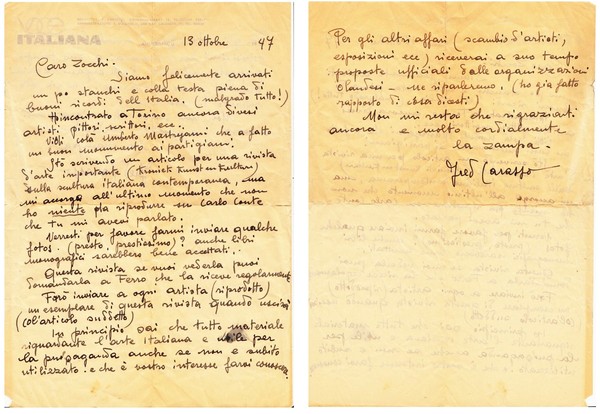 ITALIANA
13 ottobre 47
Caro Zocchi.
Siamo felicemente arrivati
un po stanchi e colla testa piena di
buoni ricordi dell'Italia. (malgrado tutto!)
Rincontrato a Torino ancora diversi
artisti pittori, scrittori, ecc.
Vidi colà Umberto Mastrojanni che a fatto
un buon monumento ai partigiani.
Stò scrivendo un articolo per una rivista
d'arte importante (Kroniek Kunst en Kultur)
sulla cultura italiana contemporanea, ma
mi accorgo all'ultimo momento che non
ho niente da riprodurre su Carlo Conte
che tu mi avevi parlato.
Vorresti per favore farmi inviare qualche
fotos. (presto, prestissimo)? anche libri
monografici sarebbero bene accettati.
Questa rivista se vuoi vederla puoi
domandarla a Ferro che la riceve regolarmente
Farò inviare a ogni artista (riprodotto)
un esemplare di questa rivista quando uscirà
(coll'articolo suddetto)
In principio sai che tutto materiale
riguardante l'arte Italiana e utile per
la propaganda anche se non e subito
utilizzato. e che è vostro interesse farvi conoscere
Per gli altri affari (scambio d'artisti,
esposizioni ecc) riceverai a suo tempo
proposte ufficiali dalle organizzazioni
Olandesi — ne riparleremo. (ho già fatto
rapporto di cosa dicesti)
Non mi resta che ringraziarti
ancora e molto cordialmente
la zampa.
Fred Carasso